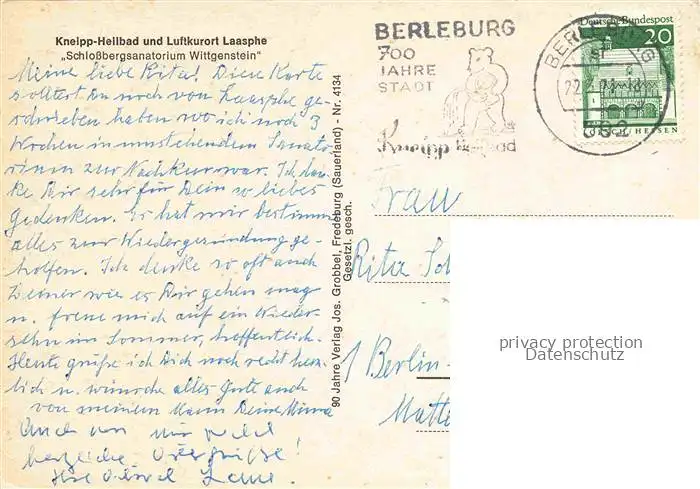 Kneipp-Heilbad und Luftkurort Laasphe
„Schloßbergsanatorium Wittgenstein"
Meine liebe Rita! Diese Karte
solltest Du noch von Laasphe ge-
schrieben haben wo ich noch 3
Wochen in umstehendem Sanato
rium zur Nachkur war. Ich dan
ke Dir sehr für Dein so liebes
Gedenken. Es hat mir bestimmt
alles zur Wiedergesundung ge-
holfen. Ich denke so oft auch
Deiner wie es Dir gehen mag
u. freue mich auf ein Wieder
sehn im Sommer, hoffentlich.
Heute grüße ich Dich noch recht herz
lich u. wünsche alles Gute auch
von meinem Mann Deine Mima
Auch von mir
herzliche Ostergrüße!
90 Jahre Verlag Jos. Grobbel, Fredeburg (Sauerland) - Nr. 4134
Gesetzl. gesch.
BERLEBURG
700
JAHRE
STADT
Kneipp Heilbad
BERLEBURG
592
Deutsche Bundespost
20
LORSCH/HESSEN
Frau
Rita Sch
1 Berlin-
Matte
privacy protection
Datenschutz